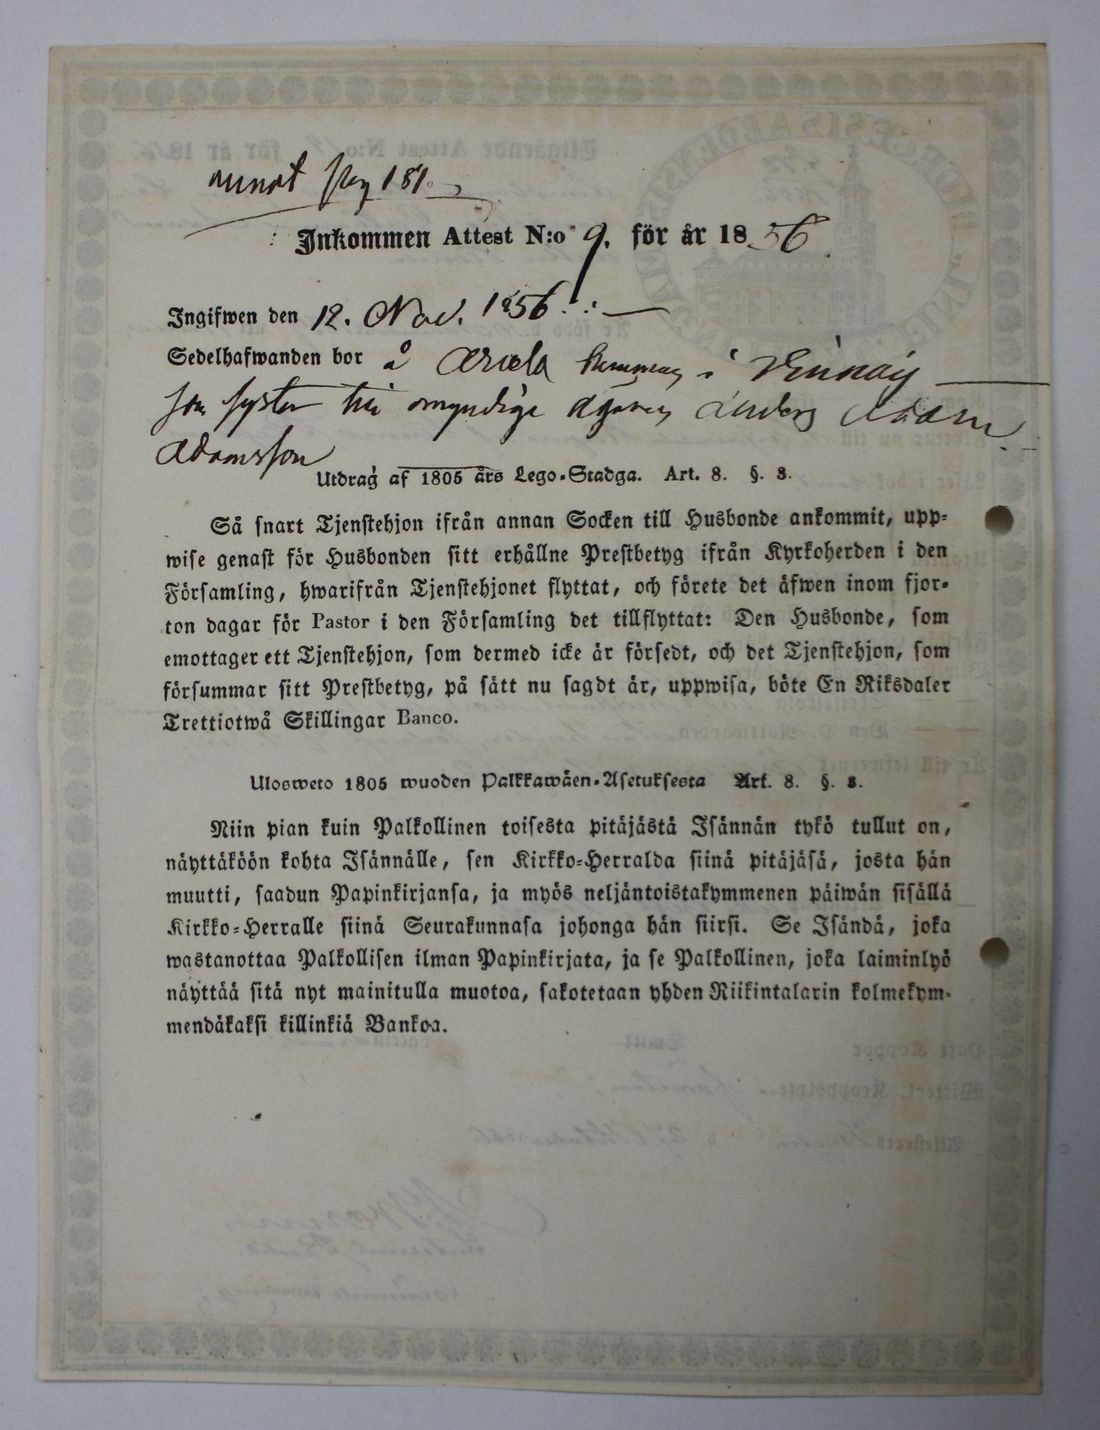 Inkommen Attest N:o 9. för år 1856.
Ingifwen den 12. Nov. 1856.
Sedelhafwanden bor å hemman i
som syster till omyndige ägaren Anders Adam
Adamsson
Utdrag af 1805 års Lego-Stadga. Art. 8. §. 8.
Så snart Tjenstehjon ifrån annan Socken till Husbonde ankommit, upp-
wise genast för Husbonden sitt erhållne Prestbetyg ifrån Kyrkoherden i den
Församling, hwarifrån Tjenstehjonet flyttat, och förete det äfwen inom fjor-
ton dagar för Pastor i den Församling det tillflyttat: Den Husbonde, som
emottager ett Tjenstehjon, som dermed icke är försedt, och det Tjenstehjon, som
försummar sitt Prestbetyg, på sätt nu sagdt är, uppwisa, böte En Riksdaler
Trettiotwå Skillingar Banco.
Ulosweto 1805 wuoden Palkkawäen-Asetuksesta Art. 8. §. 8.
Niin pian kuin Palkollinen toisesta pitäjästä Isännän tykö tullut on,
näyttäköön kohta Isännälle, sen Kirkko-Herralda siinä pitäjäsä, josta hän
muutti, saadun Papinkirjansa, ja myös neljäntoistakymmenen päiwän sisällä
Kirkko-Herralle siinä Seurakunnasa johonga hän siirsi. Se Isändä, joka
wastanottaa Palkollisen ilman Papinkirjata, ja se Palkollinen, joka laiminlyö
näyttää sitä nyt mainitulla muotoa, sakotetaan yhden Riikintalarin kolmekym-
mendäkaksi killinkiä Bankoa.